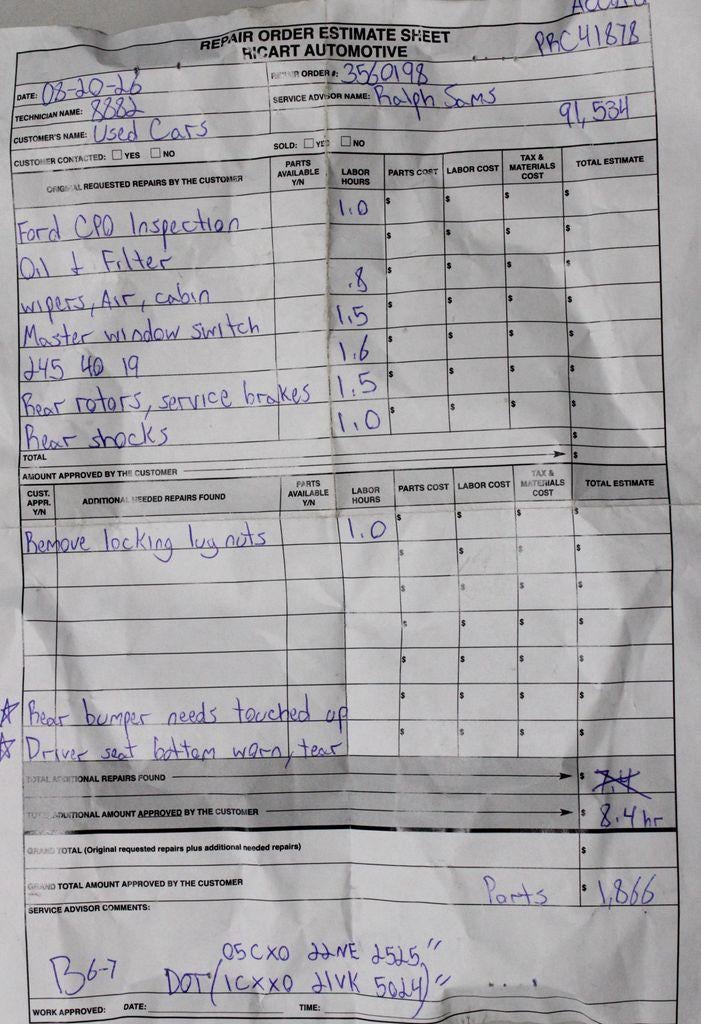 REPAIR ORDER ESTIMATE SHEET
RICART AUTOMOTIVE
PRC41878
DATE: 03-20-26
REPAIR ORDER #: 3560198
TECHNICIAN NAME: 8882
SERVICE ADVISOR NAME: Ralph Sams
91,534
CUSTOMER'S NAME: Used Cars
CUSTOMER CONTACTED: ☐ YES ☐ NO
SOLD: ☐ YES ☐ NO
ORIGINAL REQUESTED REPAIRS BY THE CUSTOMER PARTS AVAILABLE Y/N LABOR HOURS PARTS COST LABOR COST TAX & MATERIALS COST TOTAL ESTIMATE
Ford CPO Inspection 1.0 $ $ $ $
Oil & Filter $ $ $ $
wipers, Air, cabin .8 $ $ $ $
Master window switch 1.5 $ $ $ $
245 40 19 1.6 $ $ $ $
Rear rotors, service brakes 1.5 $ $ $ $
Rear shocks 1.0 $ $ $ $
TOTAL $
AMOUNT APPROVED BY THE CUSTOMER $
CUST. APPR. Y/N ADDITIONAL NEEDED REPAIRS FOUND PARTS AVAILABLE Y/N LABOR HOURS PARTS COST LABOR COST TAX & MATERIALS COST TOTAL ESTIMATE
Remove locking lug nuts 1.0 $ $ $ $
$ $ $ $
$ $ $ $
$ $ $ $
$ $ $ $
☆ Rear bumper needs touched up $ $ $ $
☆ Driver seat bottom worn, tear $ $ $ $
TOTAL ADDITIONAL REPAIRS FOUND $ 7.4
TOTAL ADDITIONAL AMOUNT APPROVED BY THE CUSTOMER $ 8.4 hr
GRAND TOTAL (Original requested repairs plus additional needed repairs) $
GRAND TOTAL AMOUNT APPROVED BY THE CUSTOMER Parts $ 1,866
SERVICE ADVISOR COMMENTS:
05CX0 22NE 2525"
B6-7 DOT(1CXX0 21VK 5024)"
WORK APPROVED: DATE: TIME: